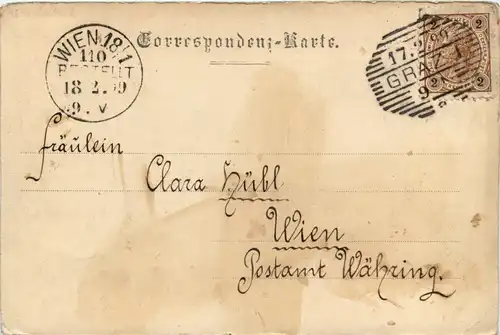 Correspondenz-Karte.
WIEN 18/1
110
BESTELLT
18 2. 99
9. V
17.2.99
GRAZ 1
9
2 2
2 2
Fräulein
Clara Hübl
Wien
Postamt Währing.